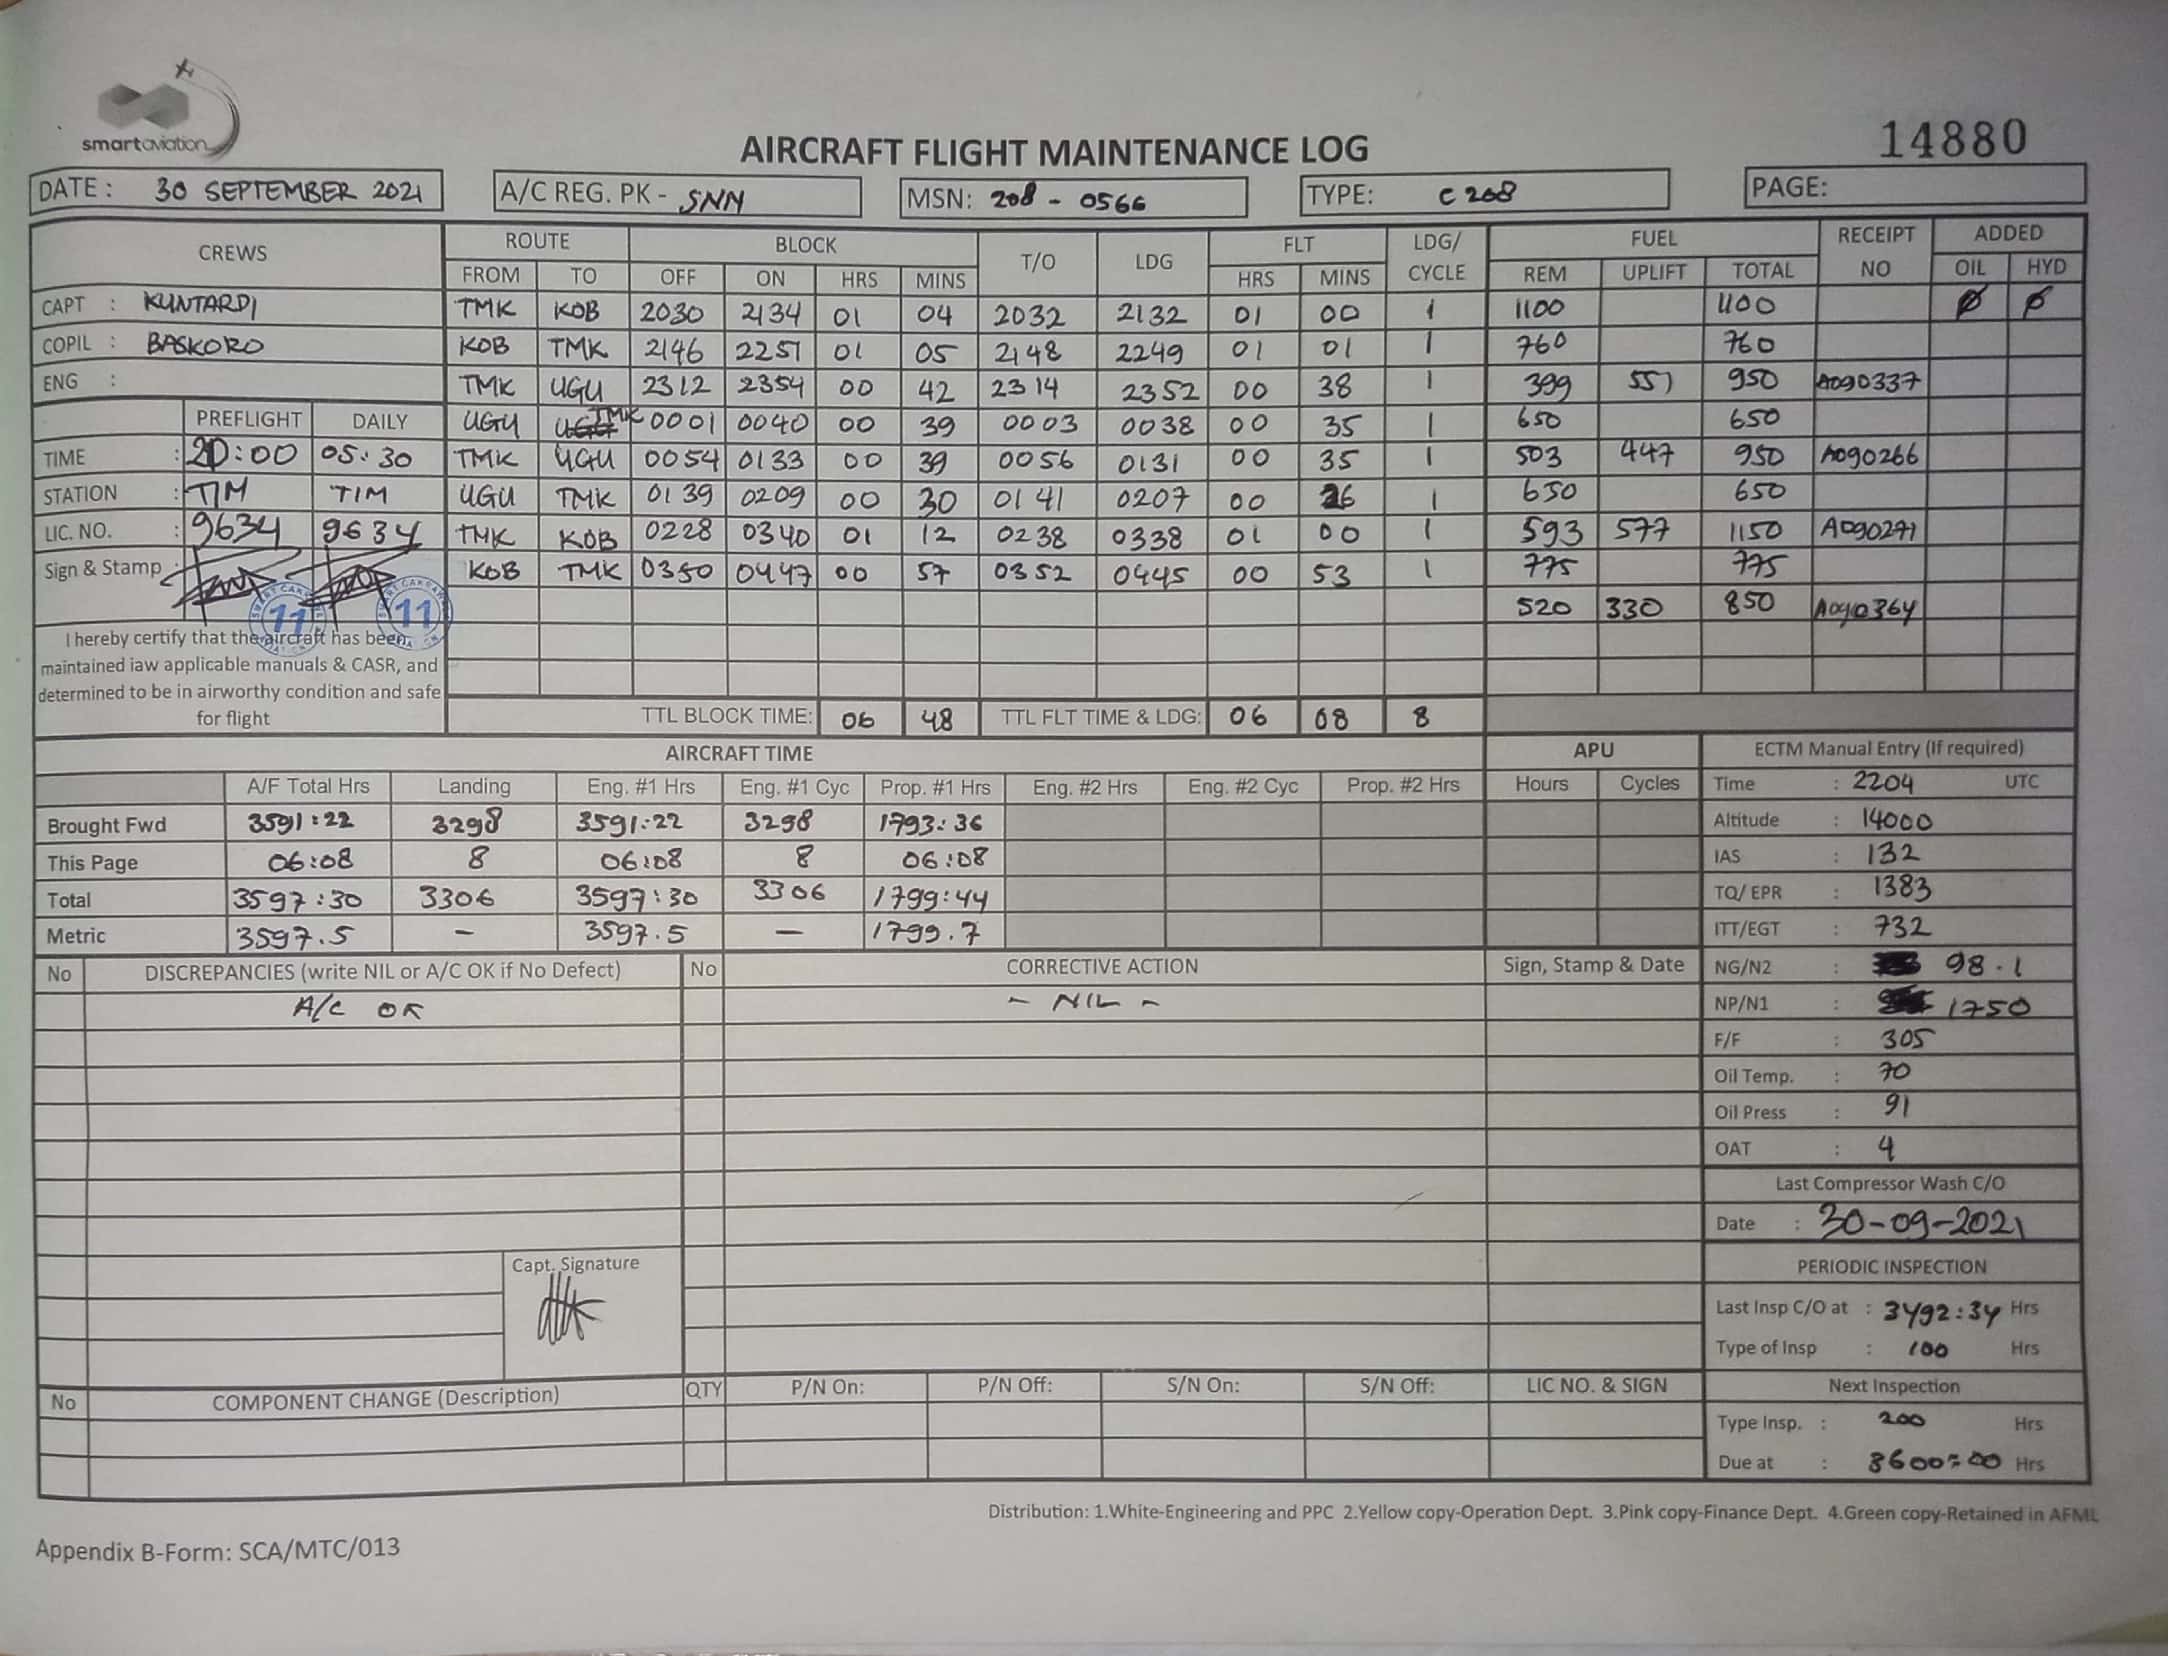 smartaviation
14880
AIRCRAFT FLIGHT MAINTENANCE LOG
DATE : 30 SEPTEMBER 2021 A/C REG. PK - SNN MSN: 208 - 0566 TYPE: C 208 PAGE:
CREWS ROUTE BLOCK T/O LDG FLT LDG/ CYCLE FUEL RECEIPT NO ADDED
FROM TO OFF ON HRS MINS HRS MINS REM UPLIFT TOTAL OIL HYD
CAPT : KUNTARDI TMK KOB 2030 2134 01 04 2032 2132 01 00 1 1100 1100 Ø Ø
COPIL : BASKORO KOB TMK 2146 2251 01 05 2148 2249 01 01 1 760 760
ENG : TMK UGU 2312 2354 00 42 2314 2352 00 38 1 399 551 950 A090337
PREFLIGHT DAILY UGU TMK 0001 0040 00 39 0003 0038 00 35 1 650 650
TIME : 20:00 05:30 TMK UGU 0054 0133 00 39 0056 0131 00 35 1 503 447 950 A090266
STATION : TIM TIM UGU TMK 0139 0209 00 30 0141 0207 00 26 1 650 650
LIC. NO. : 9634 9634 TMK KOB 0228 0340 01 12 0238 0338 01 00 1 593 577 1150 A090271
Sign & Stamp : KOB TMK 0350 0447 00 57 0352 0445 00 53 1 775 775
11 11 520 330 850 A090364
I hereby certify that the aircraft has been
maintained iaw applicable manuals & CASR, and
determined to be in airworthy condition and safe
for flight
TTL BLOCK TIME: 06 48 TTL FLT TIME & LDG: 06 08 8
AIRCRAFT TIME APU ECTM Manual Entry (If required)
A/F Total Hrs Landing Eng. #1 Hrs Eng. #1 Cyc Prop. #1 Hrs Eng. #2 Hrs Eng. #2 Cyc Prop. #2 Hrs Hours Cycles Time : 2204 UTC
Brought Fwd 3591:22 3298 3591:22 3298 1793:36 Altitude : 14000
This Page 06:08 8 06:08 8 06:08 IAS : 132
Total 3597:30 3306 3597:30 3306 1799:44 TQ/ EPR : 1383
Metric 3597.5 - 3597.5 - 1799.7 ITT/EGT : 732
No DISCREPANCIES (write NIL or A/C OK if No Defect) No CORRECTIVE ACTION Sign, Stamp & Date NG/N2 : 98.1
A/C OK - NIL - NP/N1 : 1750
F/F : 305
Oil Temp. : 70
Oil Press : 91
OAT : 4
Last Compressor Wash C/O
Date : 30-09-2021
Capt. Signature
PERIODIC INSPECTION
Last Insp C/O at : 3492:34 Hrs
Type of Insp : 100 Hrs
No COMPONENT CHANGE (Description) QTY P/N On: P/N Off: S/N On: S/N Off: LIC NO. & SIGN Next Inspection
Type Insp. : 200 Hrs
Due at : 3600:00 Hrs
Distribution: 1.White-Engineering and PPC 2.Yellow copy-Operation Dept. 3.Pink copy-Finance Dept. 4.Green copy-Retained in AFML
Appendix B-Form: SCA/MTC/013